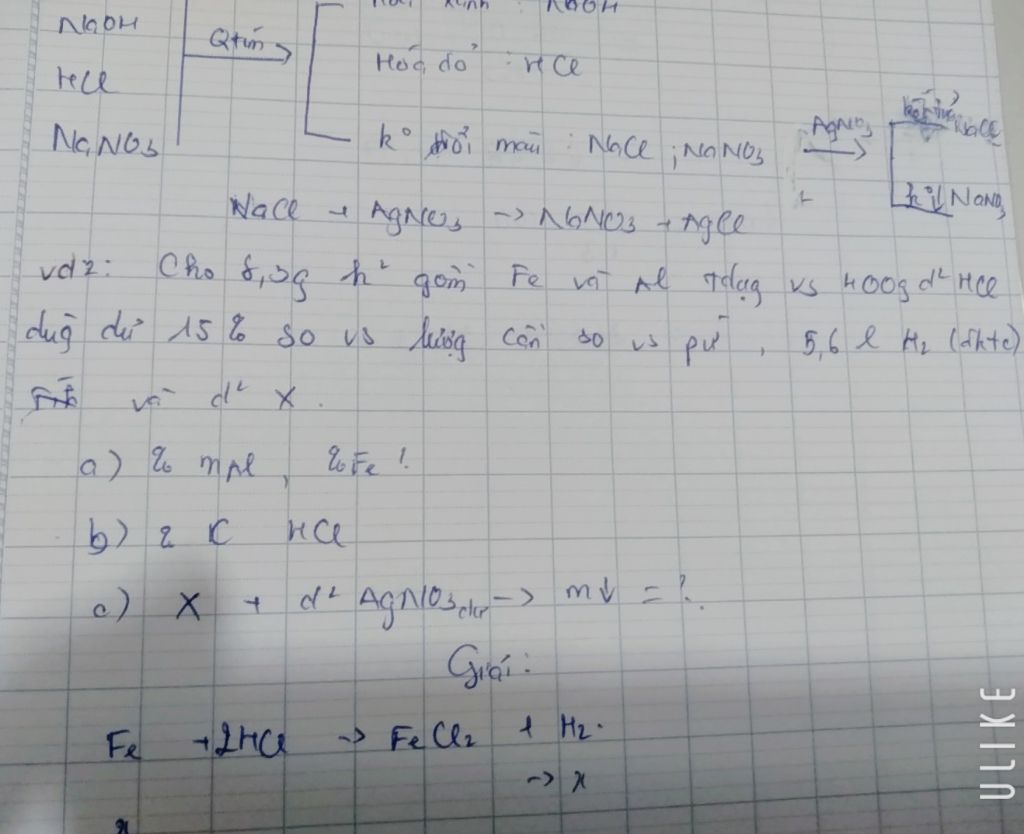 : NaOH
NaOH
Qtím
Hoá đỏ : HCl
HCl
NaNO3
k° đổi màu : NaCl ; NaNO3
AgNO3
NaCl
k° ↓ NaNO3
NaCl + AgNO3 -> NaNO3 + AgCl
vd2: Cho 8,3g h² gồm Fe và Al tdạg vs 400g d² HCl
dug dư 15% so vs lượg cần so vs pư, 5,6 l H2 (đktc)
và d² X.
a) % mAl, % Fe !
b) % C HCl
c) X + d² AgNO3 dư -> m↓ = ?
Giải:
Fe + 2HCl -> FeCl2 + H2.
-> x
x
ULIKE